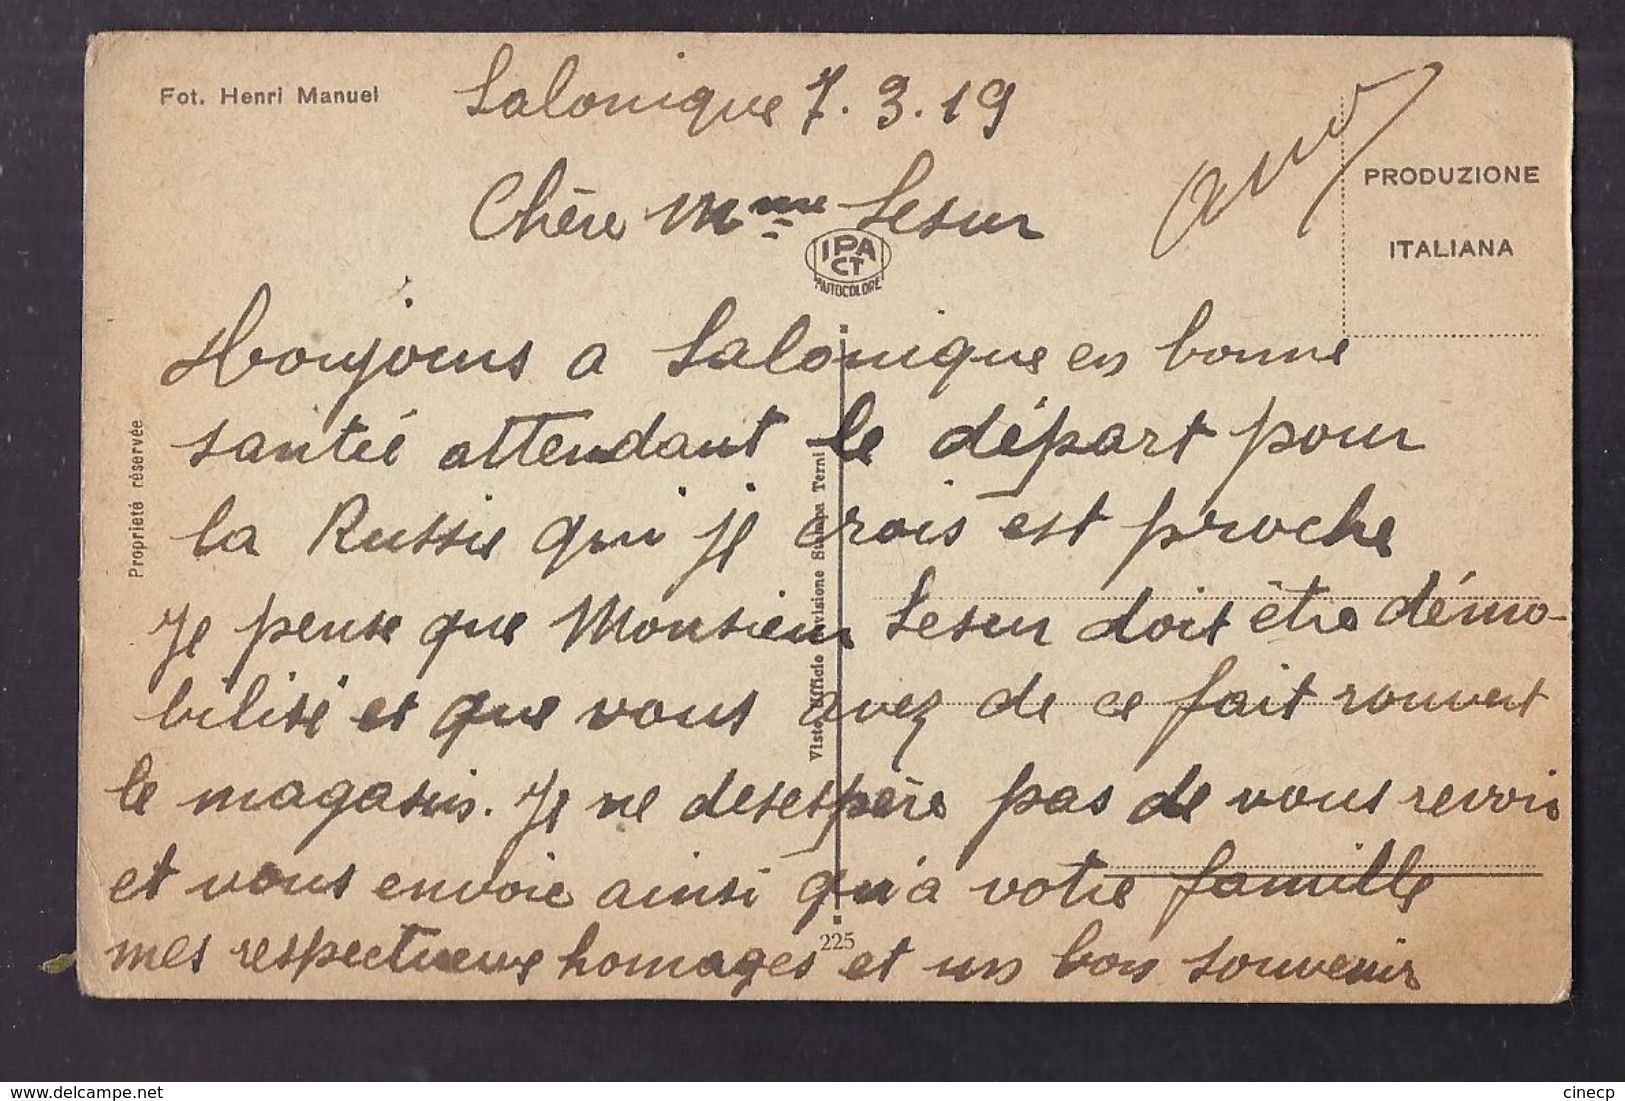 Fot. Henri Manuel
Salonique 7.3.19
Chère Mme Lesur
PRODUZIONE
ITALIANA
IPA
CT
AUTOCOLORE
Toujours a Salonique en bonne
santé attendant le départ pour
la Russie qui je crois est proche
Je pense que Monsieur Lesur doit être démo-
bilisé et que vous avez de ce fait rouvert
le magasin. Je ne desespère pas de vous revoir
et vous envoie ainsi qu'a votre famille
mes respectueux homages et un bon souvenir
Proprieté réservée
Visto Ufficio Revisione Stampa Terni
225
delcampe.net
cinecp